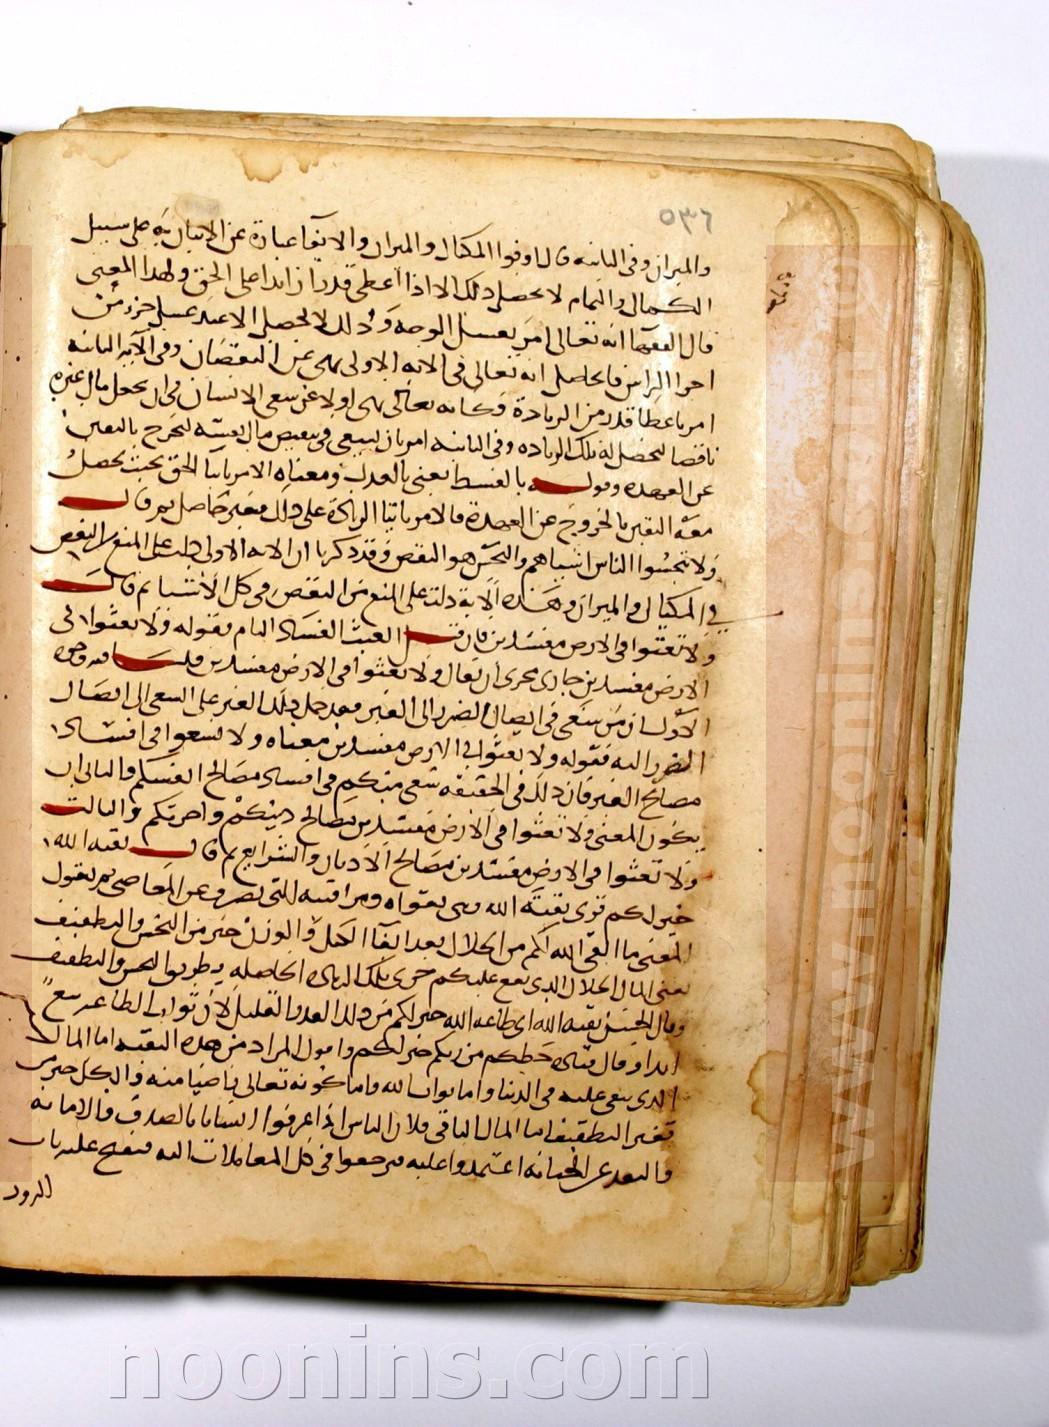 ٥٣٦
والميزان وفى الثانيه قال اوفوا المكيال والميزان والايفآ عبارة عن الاتيان به على سبيل
الكمال والتمام لا يحصل ذلك الا اذا أعطى قدرا زايدا على الحق ولهذا المعنى
قال الفقهآ انه تعالى امر بغسل الوجه وذلك لا يحصل الا عند غسل جزء من
اجزا الراس فالحاصل انه تعالى فى الايه الاولى نهى عن النقصان وفى الآيه الثانيه
امر باعطا قدر من الزيادة وكانه تعالى نهى اولا عن سعى الانسان فى ان يجعل مال غيره
ناقصا لتحصل له تلك الزياده وفى الثانيه امر بان يسعى فى تنقيص مال نفسه ليخرج باليقين
عن العهده وقوله بالقسط يعنى بالعدل ومعناه الامر بايتا الحق بحيث يحصل
معه اليقين بالخروج عن العهدة فالامر بايتا الزيادة على ذلك غير حاصل ثم قال
ولا تبخسوا الناس اشياهم والبخس هو النقص وقد ذكرنا ان الايه الاولى دلت على المنع من النقص
في المكيال والميزان وهذه الآية دلت على المنع من النقص فى كل الأشيا ثم قال
ولا تعثوا فى الارض مفسدين فان قيل العيث الفساد التام فقوله ولا تعثوا فى
الارض مفسدين جارى مجرى ان يقال ولا تعثوا فى الارض مفسدين قلنا فيه وجوه
الأول ان من سعى فى ايصال الضرر الى الغير فقد حمل ذلك الغير على السعى الى ايصال
الضرر اليه فقوله ولا تعثوا فى الارض مفسدين معناه ولا تسعوا فى افساد
مصالح الغير فان ذلك فى الحقيقه سعى منكم فى افساد مصالح انفسكم والثانى ان
يكون المعنى ولا تعثوا فى الارض مفسدين مصالح دينكم واخرتكم والثالث
ولا تعثوا فى الارض مفسدين مصالح الاديان والشرايع ثم قال بقيه الله
خير لكم قرى بقية الله وهى تقواه ومراقبته التى تصرف عن المعاصى ثم نقول
المعنى ما ابقى الله لكم من الحلال بعد ايفآ الكيل والوزن خير من البخس والتطفيف
يعنى المال الحلال الذى يبقى عليكم خير من تلك الزيادة الحاصله بطريق البخس والتطفيف
وقال الحسن بقيه الله اى طاعه الله خير لكم من ذلك القدر القليل لأن ثواب الطاعه يبقى
ابدا وقال قتاده حظكم من ربكم خير لكم واقول المراد من هذه البقيه اما المال
الذى يبقى عليه فى الدنيا واما ثواب الله واما كونه تعالى راضيا منه والكل خير من
قدر التطفيف اما المال الباقى فلان الناس اذا عرفوا انسانا بالصدق والامانه
والبعد عن الخيانه اعتمدوا عليه ورجعوا فى كل المعاملات اليه فيفتح عليه باب
الرزق
noonins.com
www.noonins.com